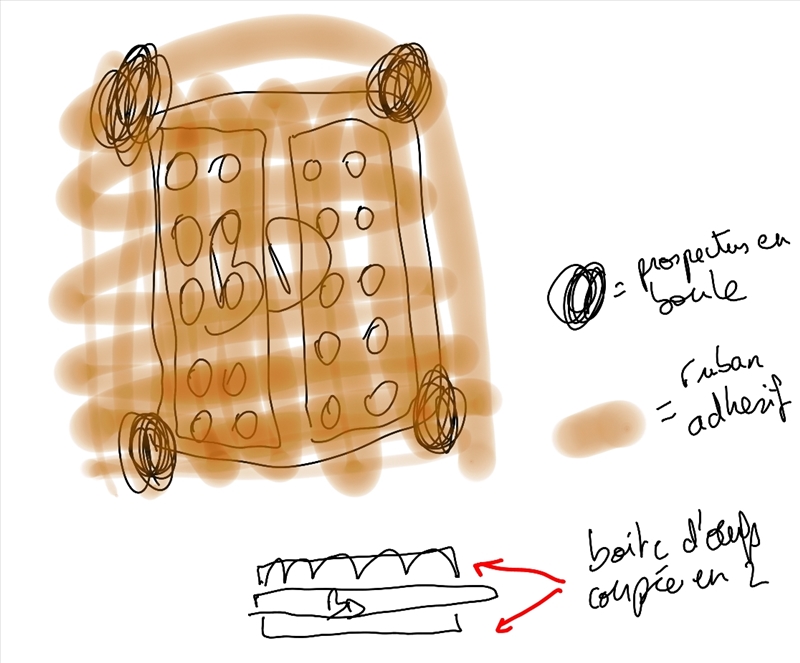 BD
= prospectus en
boule
= ruban
adhésif
BD
boite d'oeufs
coupée en 2